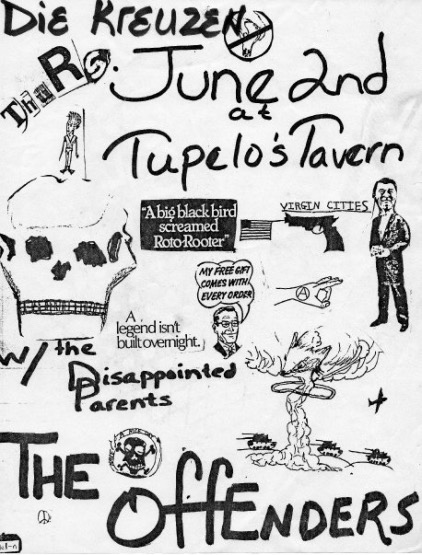 DIE KREUZEN
THURS.
June 2nd
at
Tupelo's Tavern
"A big black bird
screamed
Roto-Rooter"
VIRGIN CITIES
MY FREE GIFT
COMES WITH
EVERY ORDER
A
A
legend isn't
built overnight.
w/ the
Disappointed
Parents
THE
OffENDERS